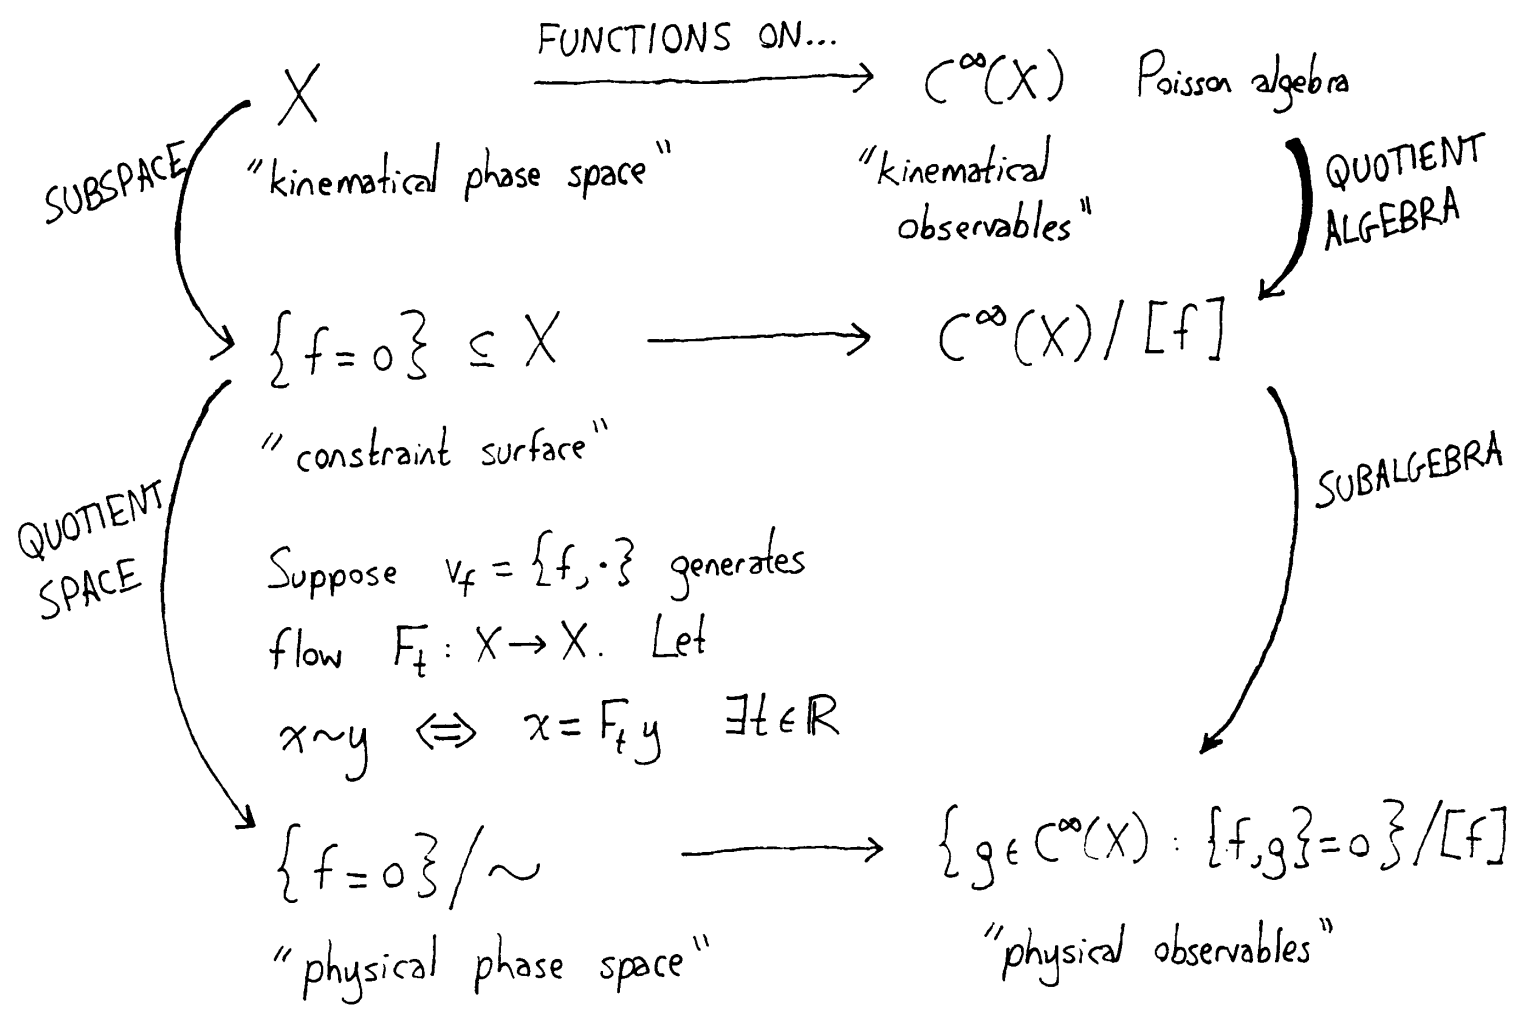 FUNCTIONS ON...
X C^∞(X) Poisson algebra
SUBSPACE
"kinematical phase space"
"kinematical
observables"
QUOTIENT
ALGEBRA
{f=0} ⊆ X C^∞(X)/[f]
"constraint surface"
QUOTIENT
SPACE
SUBALGEBRA
Suppose v_f = {f,·} generates
flow F_t : X→X. Let
x~y ⇔ x=F_t y ∃t∈ℝ
{f=0}/~ {g∈C^∞(X) : {f,g}=0}/[f]
"physical phase space"
"physical observables"